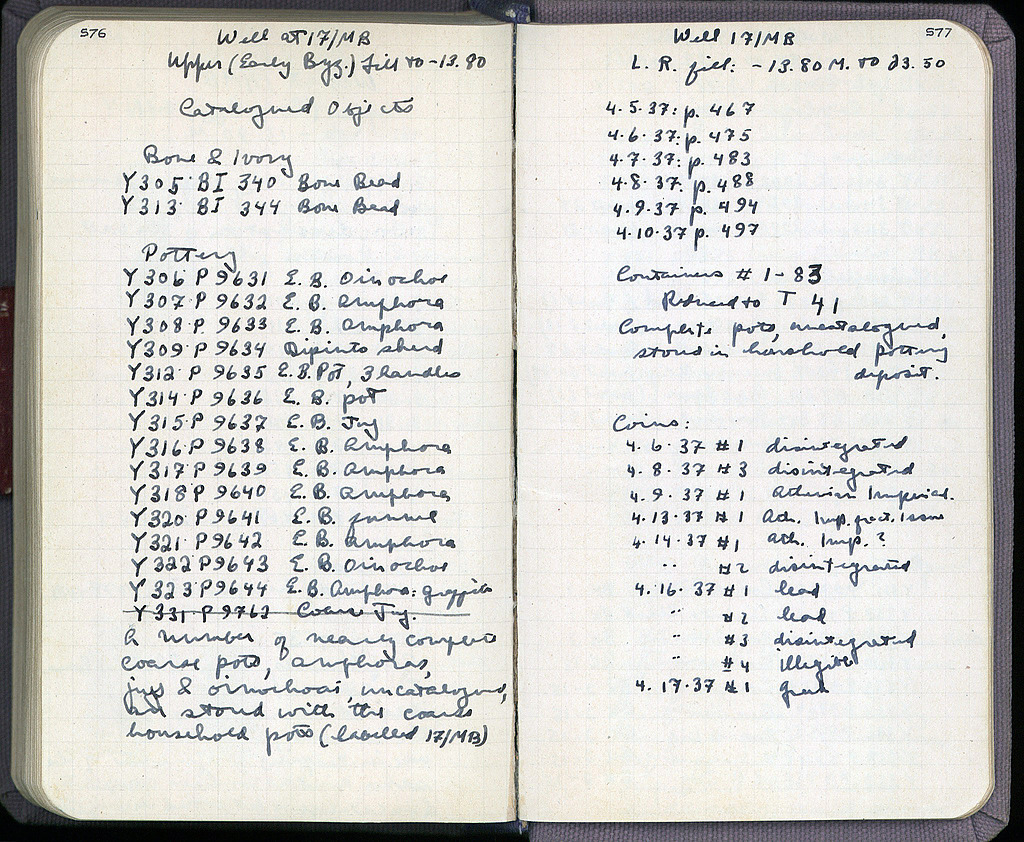 576
Well at 17/MB
Upper (Early Byz.) fill to -13.80
Catalogued Objects
Bone & Ivory
Y 305 BI 340 Bone Bead
Y 313 BI 344 Bone Bead
Pottery
Y 306 P 9631 E. B. Oinochoe
Y 307 P 9632 E. B. Amphora
Y 308 P 9633 E. B. Amphora
Y 309 P 9634 Dipinto sherd
Y 312 P 9635 E. B. Pot, 3 handles
Y 314 P 9636 E. B. pot
Y 315 P 9637 E. B. Jug
Y 316 P 9638 E. B. Amphora
Y 317 P 9639 E. B. Amphora
Y 318 P 9640 E. B. Amphora
Y 320 P 9641 E. B. funnel
Y 321 P 9642 E. B. Amphora
Y 322 P 9643 E. B. Oinochoe
Y 323 P 9644 E. B. Amphora: graffito
Y 331 P 9763 Coarse Jug.
A number of nearly complete
coarse pots, amphoras,
jugs & oinochoai, uncatalogued,
are stored with the coarse
household pots (labelled 17/MB)
577
Well 17/MB
L. R. fill: -13.80 M. to 23.50
4.5.37: p. 467
4.6.37: p. 475
4.7.37: p. 483
4.8.37: p. 488
4.9.37 p. 494
4.10.37 p. 497
Containers # 1-83
Reduced to T 41
Complete pots, uncatalogued,
stored in household pottery
deposit.
Coins:
4. 6. 37 #1 disintegrated
4. 8. 37 #3 disintegrated
4. 9. 37 #1 Athenian Imperial.
4. 13. 37 #1 Ath. Imp. quct. issue
4. 14. 37 #1 Ath. Imp. ?
" #2 disintegrated
4. 16. 37 #1 lead
" #2 lead
" #3 disintegrated
" #4 illegible
4. 17. 37 #1 Greek